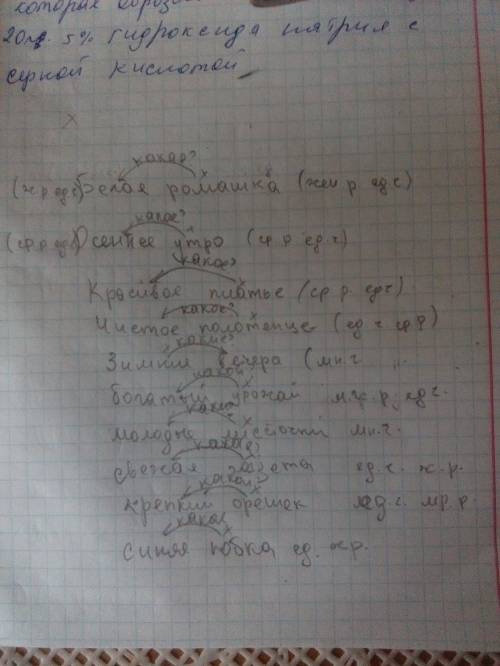 которая образо
20 мл. 5% гидроксида натрия с
серной кислотой
какая?
(ж р ед с) Белая ромашка (жен р. ед с)
какое?
(ср р ед ч) Осеннее утро (ср р ед. ч)
какое?
Красивое платье (ср р. ед ч)
какое?
Чистое полотенце (ед ч ср р)
какие?
Зимние вечера (мн. ч
какой
богатый урожай м. р. ед ч.
какие
молодые листочки мн. ч.
какая?
свежая газеты ед. ч. ж. р.
какой?
крепкий орешек ед. ч. мр. р.
какая?
синяя юбка ед. жр.